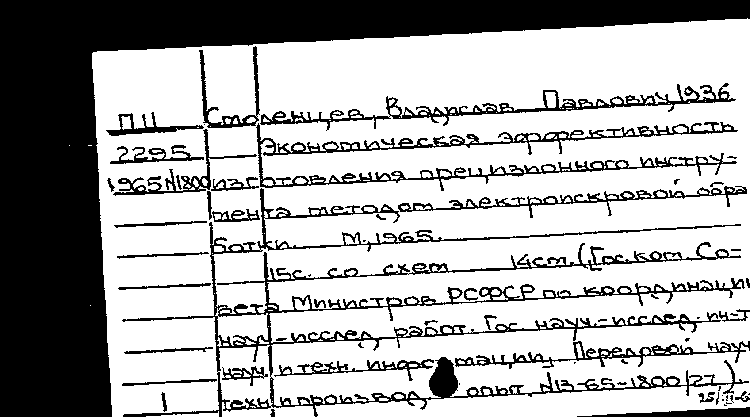 П11 Столенцев, Владислав Павлович, 1936
2295 Экономическая эффективность
1965 N1800 изготовления прецизионного инстру-
мента методом электроискровой обра
ботки. М., 1965.
15с. со схем 14см. (Гос. ком. Со-
вета Министров РСФСР по координации
науч-исслед. работ. Гос науч.-исслед. ин-т
науч. и техн. информации. Передовой науч
1 техн и производ. опыт. N13-65-1800/27).